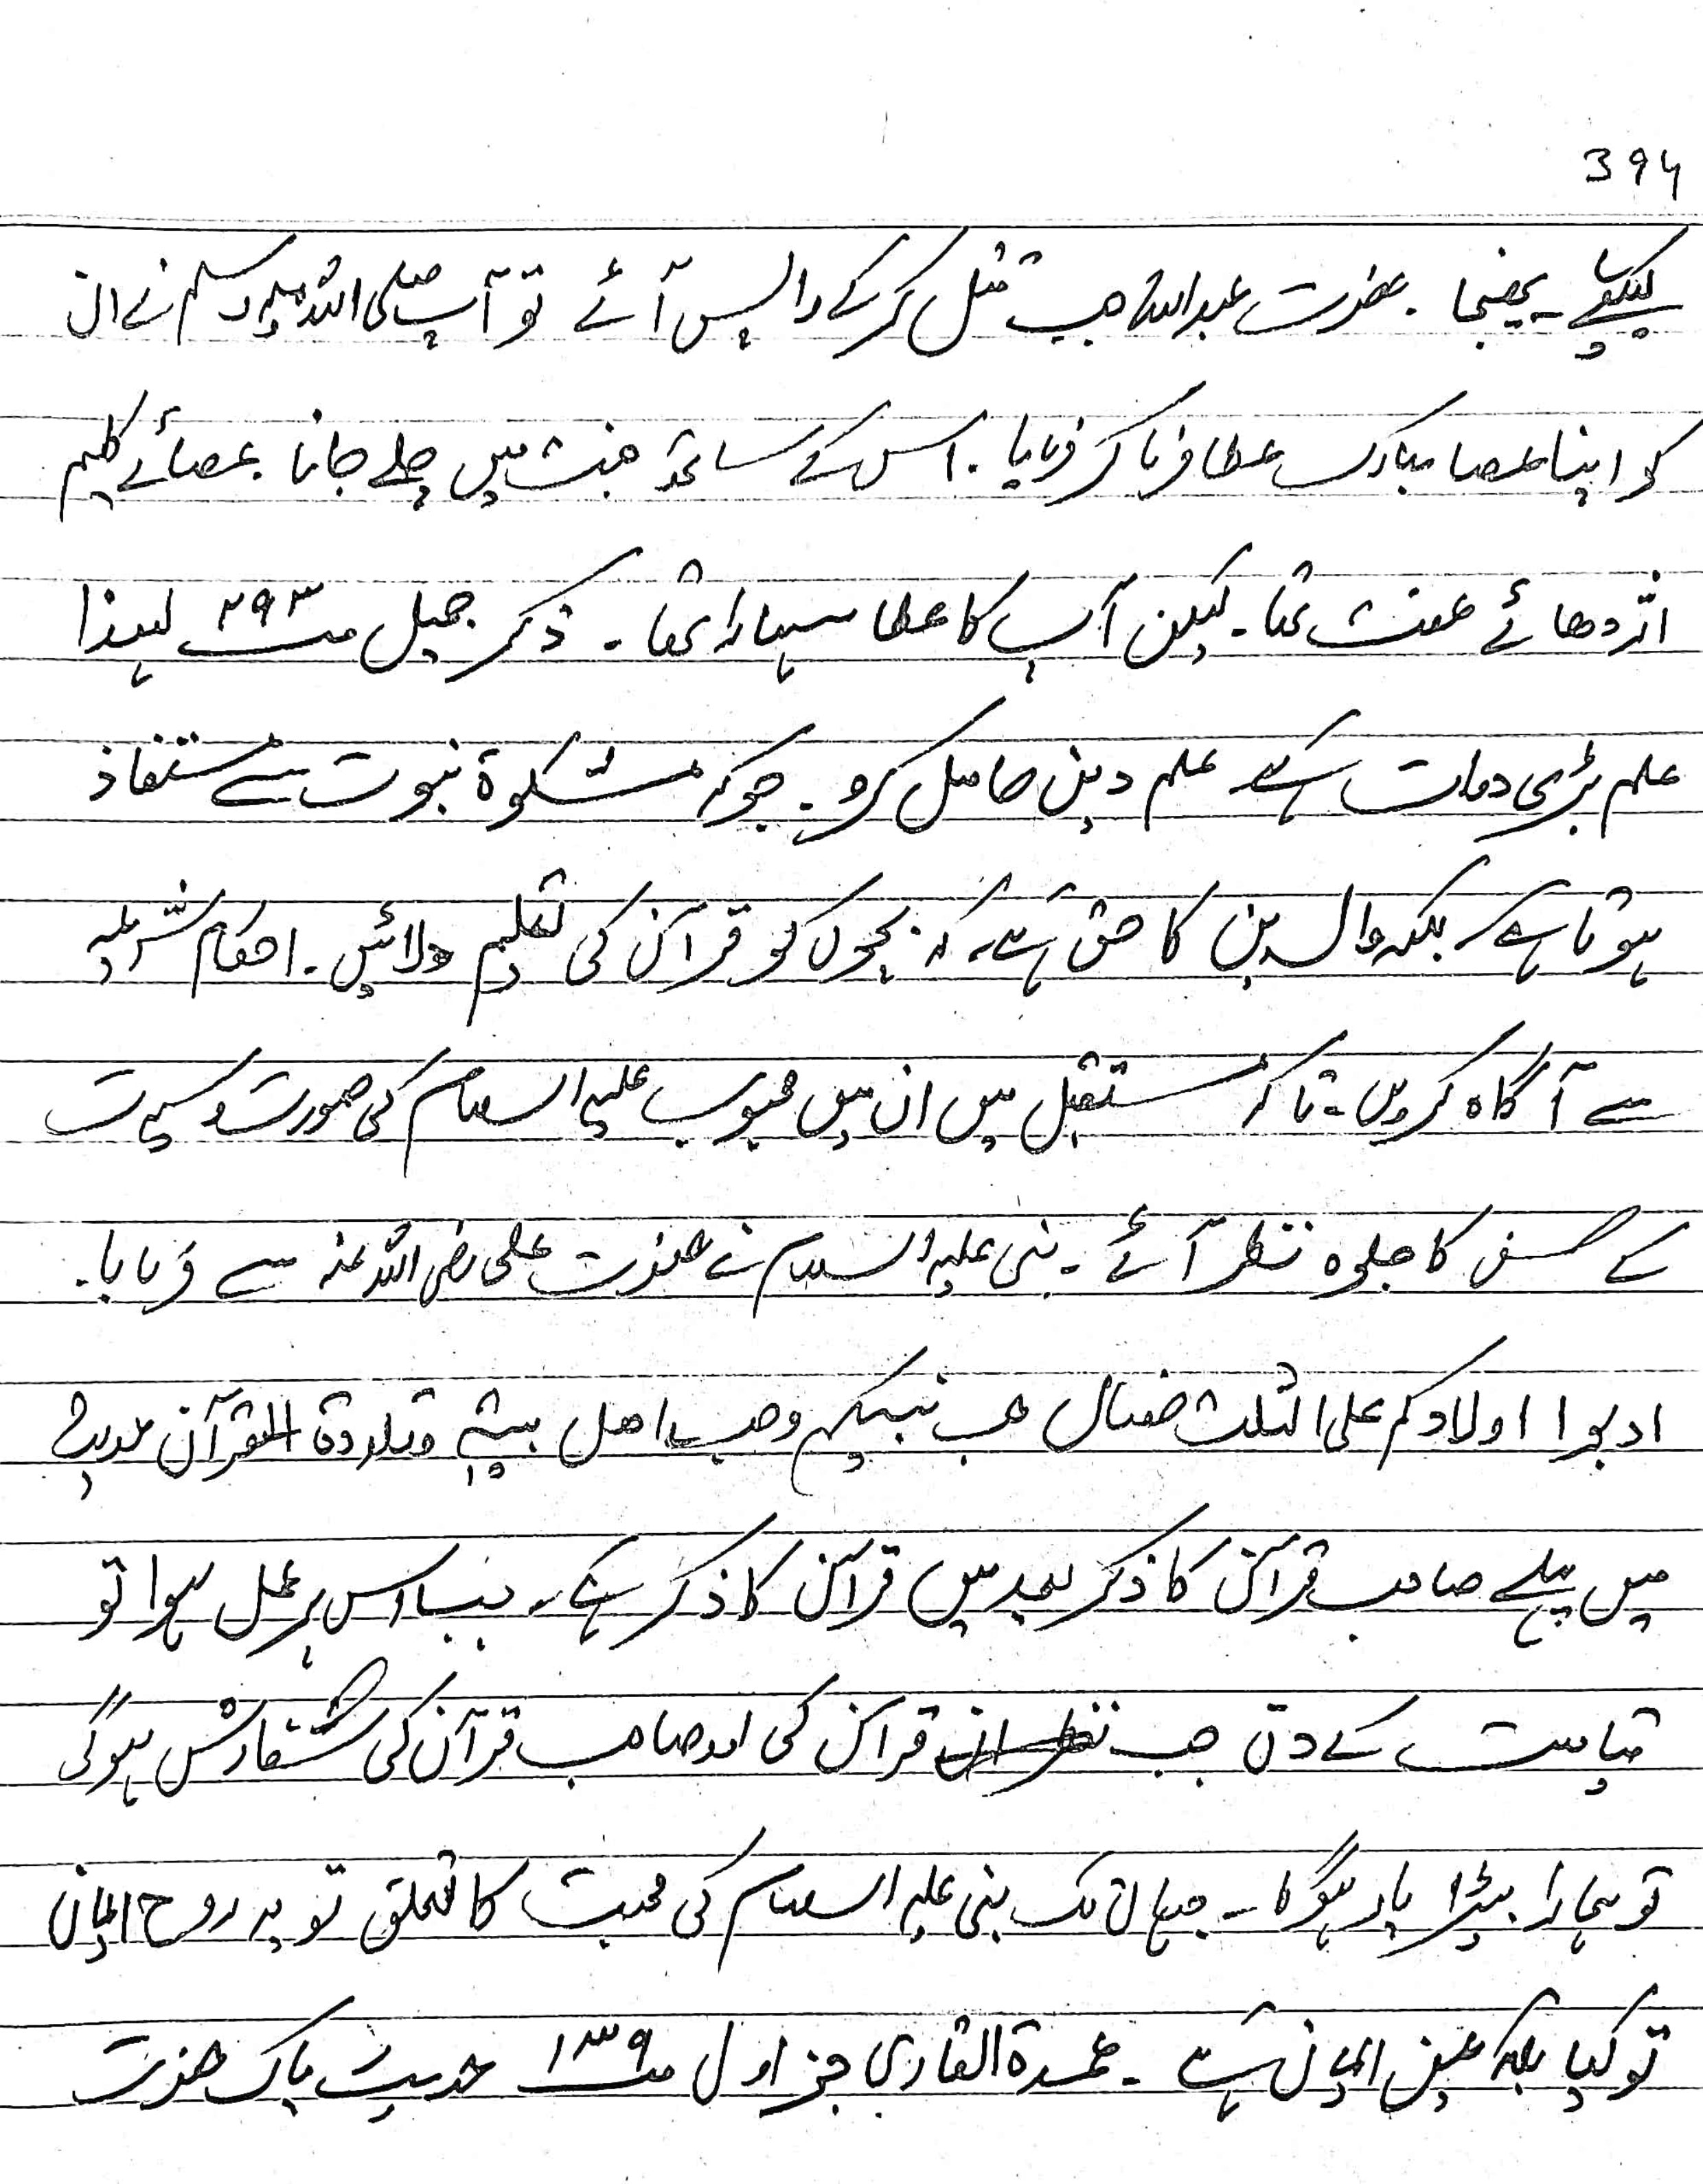 394
کیلئے بھیجا ۔ حضرت عبداللہ جب قتل کرکے واپس آئے تو آپ صلی اللہ علیہ وسلم نے ان
کو اپنا عصا مبارک عطا فرما کر فرمایا ۔ اس کے ساتھ جنت میں چلے جانا عصائے کلیم
اژدھائے صفت تھا ۔ لیکن آپ کا عطا سہارا تھا ۔ ذکر جمیل صـ ۲۹۳ لہذا
علم بڑی دولت ہے علم دین حاصل کرو ۔ جوکہ مشکوۃ نبوت سے مستفاذ
ہوتا ہے بلکہ والدین کا حق ہے کہ بچوں کو قرآن کی تعلیم دلائیں ۔ احکام شرعیہ
سے آگاہ کریں ۔ تاکہ مستقبل میں ان میں محبوب علیہ السلام کی صورت و سیرت
کے حسن کا جلوہ نظر آئے ۔ نبی علیہ السلام نے حضرت علی رضی اللہ عنہ سے فرمایا ۔
ادبوا اولادکم علی الثلث خصال حب نبیکم وحب اھل بیتہ وتلاوۃ القرآن حدیث
میں پہلے صاحب قرآن کا ذکر بعد میں قرآن کا ذکر ہے ۔ جب اس پر عمل ہوا تو
قیامت کے دن جب قرآن کی اور صاحب قرآن کی شفارش ہوگی
تو ہمارا بیڑا پار ہوگا ۔ جہاں تک نبی علیہ السلام کی محبت کا تعلق تو یہ روح ایمان
تو کیا بلکہ عین ایمان ہے ۔ عمدۃ القاری جز اول صـ ۱۳۹ حدیث پاک حضرت